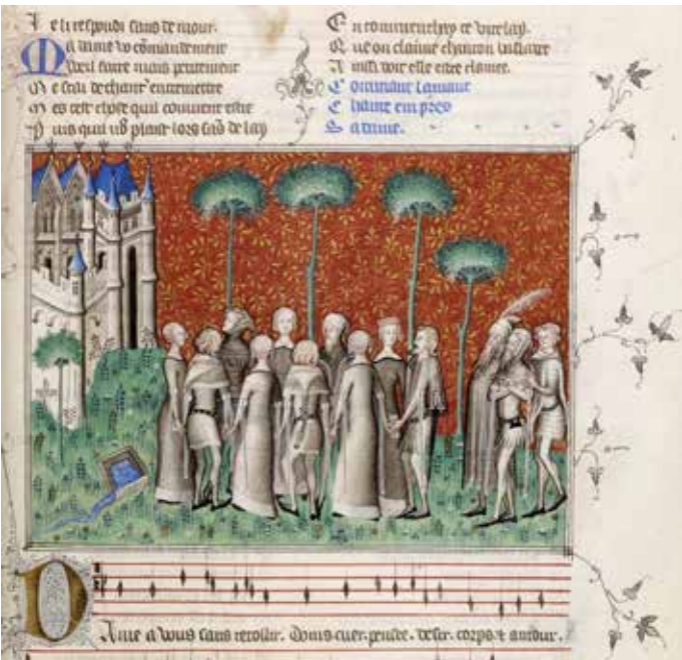 Je li respondi sans de mour.
Ma dame vo cōmandement
Weil faire mais petitement
Me scai de chant' entremettre
Mes cest chose quil couuient estre
Puis quil vꝰ plaist lors sās de lay
Encommenchay ce virelay
Que on claime chancon baladee
Ainsi doit elle estre clamee.
Comment lamant
Chante empres
Sa dame.
Dame a vous sans retollir. Doins cuer. pensee. desir. corps. & amour.